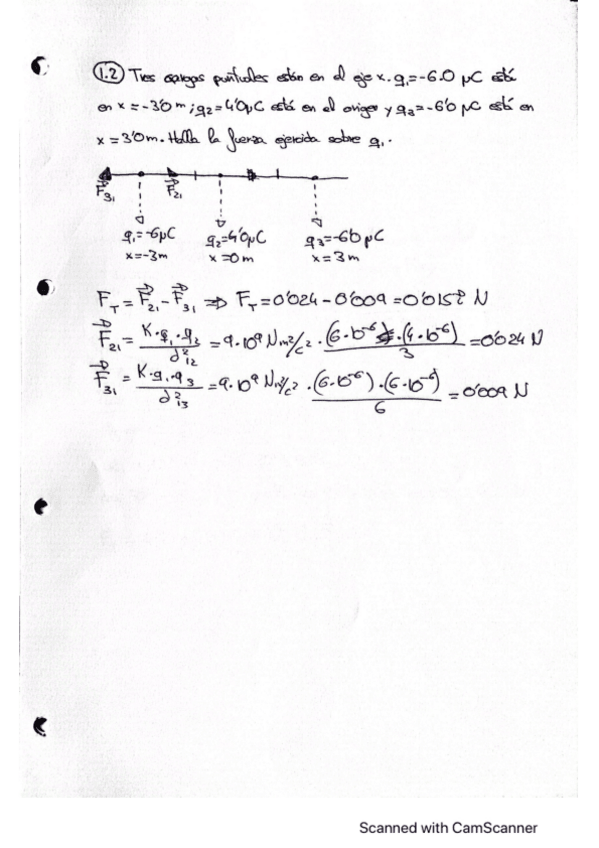 1.2 Tres cargas puntuales están en el eje x. q₁=-6.0 µC está
en x=-3'0m; q2=4'0µC está en el origen y q3=-6'0 µC está en
x=3'0m. Halla la fuerza ejercida sobre q₁.
F₃₁ F₂₁
q₁=-6µC q2=4'0µC q3=-6'0µC
x=-3m x=0m x=3m
F_T = F₂₁ - F₃₁ ⇒ F_T = 0'024 - 0'009 = 0'015 N
F₂₁ = K·q₁·q₂ / d²₁₂ = 9·10⁹ Nm²/c² · (6·10⁻⁶)·(4·10⁻⁶) / 3 = 0'024 N
F₃₁ = K·q₁·q₃ / d²₁₃ = 9·10⁹ Nm²/c² · (6·10⁻⁶)·(6·10⁻⁶) / 6 = 0'009 N
Scanned with CamScanner